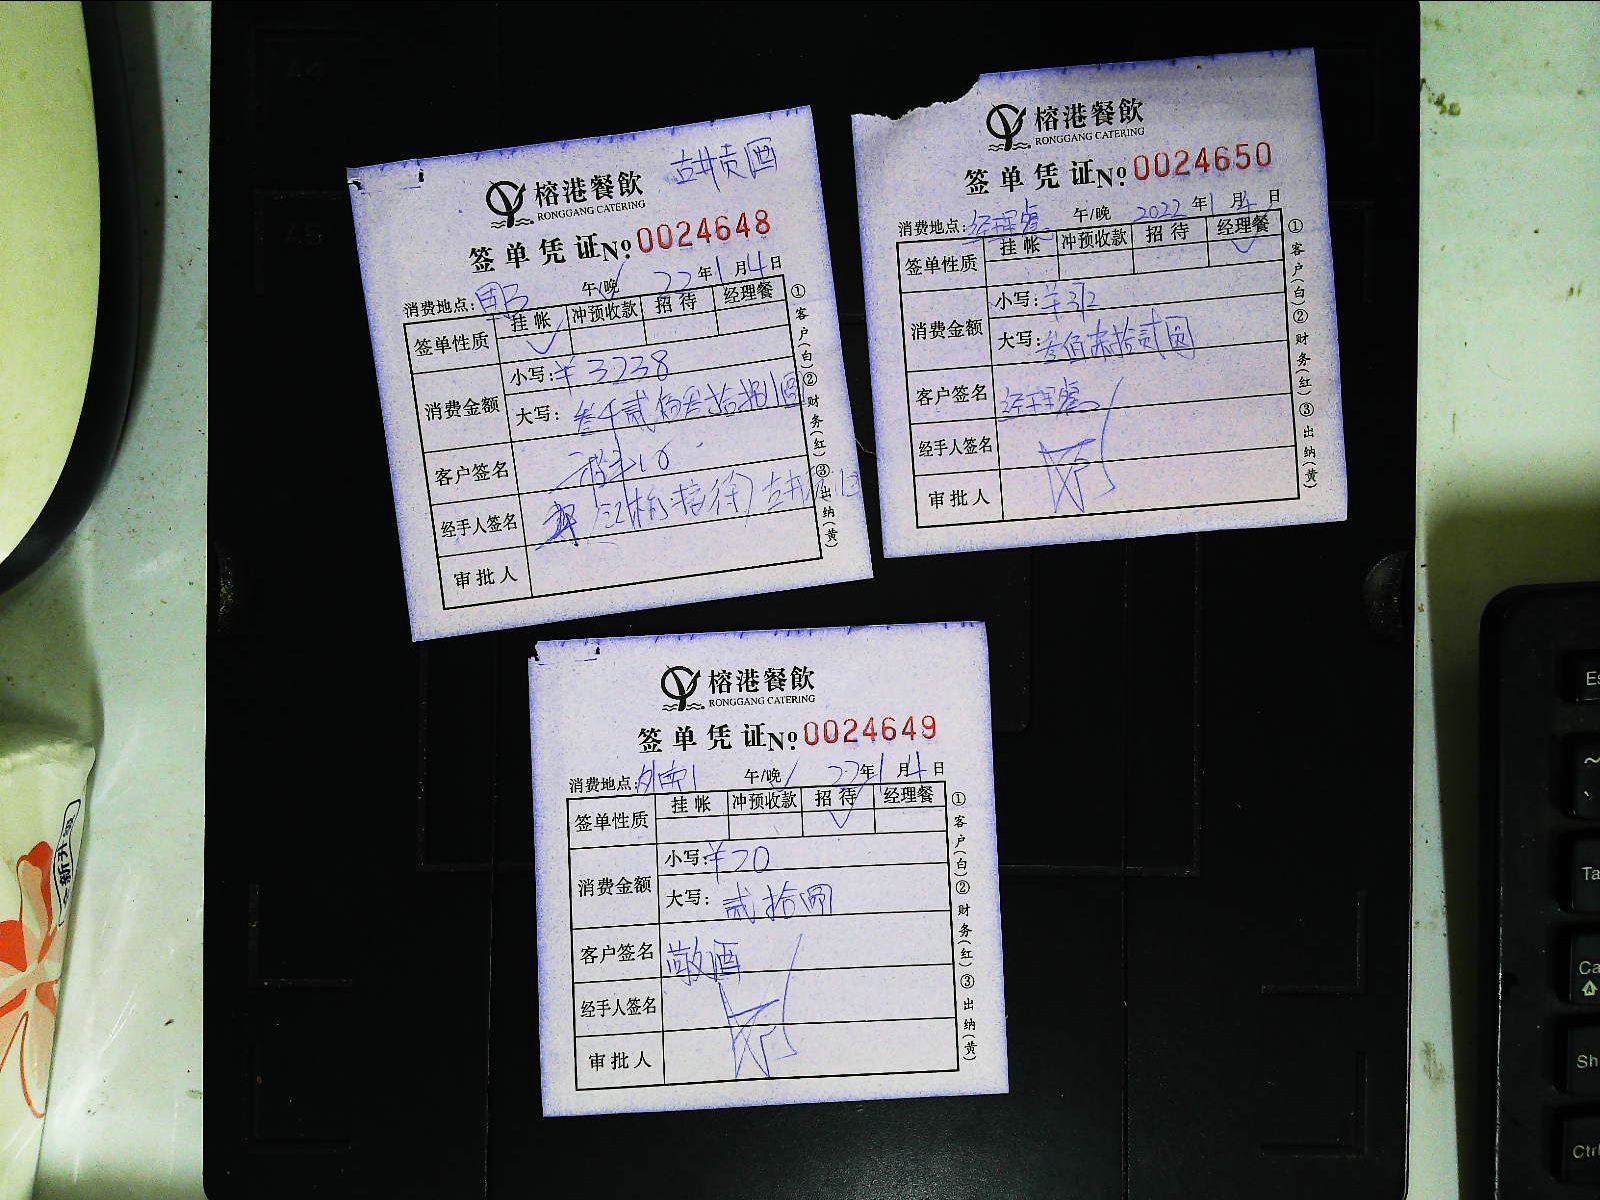 古井贡酒
榕港餐飲
RONGGANG CATERING
签单凭证 No 0024648
消费地点: 午/晚 22年1月4日
签单性质 挂帐 冲预收款 招待 经理餐
消费金额 小写: ¥3238
大写: 叁千贰佰叁拾捌圆
客户签名
经手人签名
审批人
①客户(白)②财务(红)③出纳(黄)
榕港餐飲
RONGGANG CATERING
签单凭证 No 0024650
消费地点: 经理餐 午/晚 2022年1月4日
签单性质 挂帐 冲预收款 招待 经理餐
消费金额 小写:
大写:
客户签名 经理餐
经手人签名
审批人
①客户(白)②财务(红)③出纳(黄)
榕港餐飲
RONGGANG CATERING
签单凭证 No 0024649
消费地点: 午/晚 22年1月4日
签单性质 挂帐 冲预收款 招待 经理餐
消费金额 小写: ¥20
大写: 贰拾圆
客户签名 敬酒
经手人签名
审批人
①客户(白)②财务(红)③出纳(黄)
Ctrl